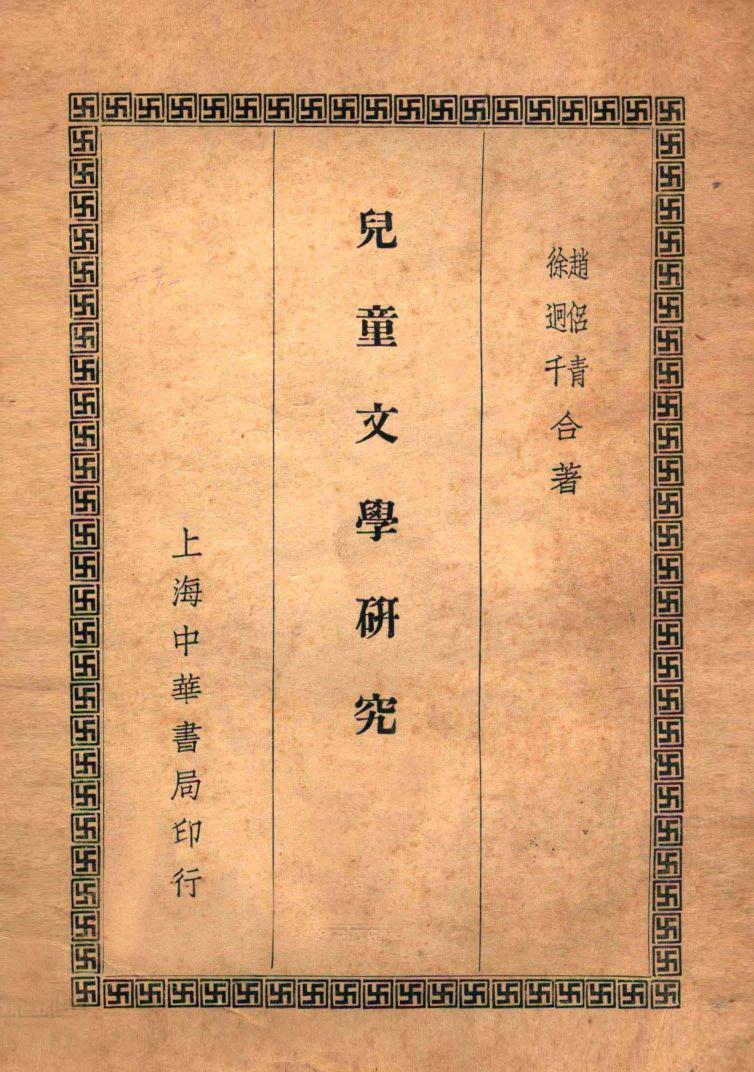 趙侶青
徐迥千
合著
兒童文學研究
上海中華書局印行